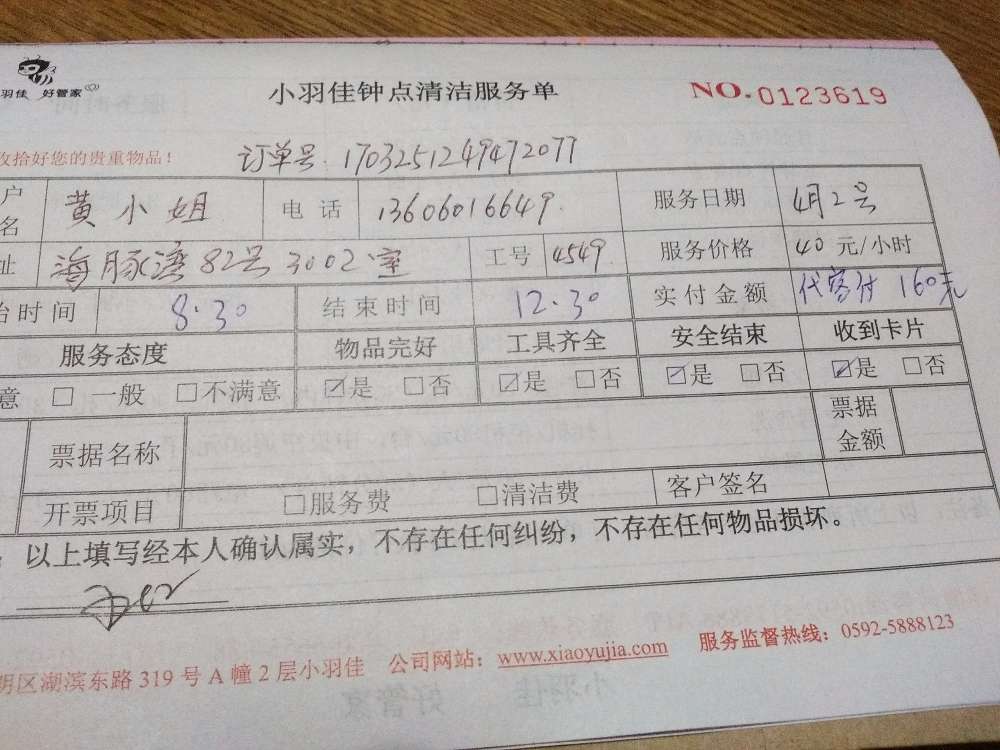 羽佳 好管家
小羽佳钟点清洁服务单
NO.0123619
收拾好您的贵重物品！
订单号 1703251249472077
户名 黄小姐 电话 13606016649 服务日期 4月2号
址 海豚湾82号3002室 工号 4549 服务价格 40元/小时
始时间 8:30 结束时间 12:30 实付金额 代客付 160元
服务态度 物品完好 工具齐全 安全结束 收到卡片
意 □一般 □不满意 ☑是 □否 ☑是 □否 ☑是 □否 ☑是 □否
票据名称 票据金额
开票项目 □服务费 □清洁费 客户签名
：以上填写经本人确认属实，不存在任何纠纷，不存在任何物品损坏。
明区湖滨东路319号A幢2层小羽佳 公司网站：www.xiaoyujia.com 服务监督热线：0592-5888123